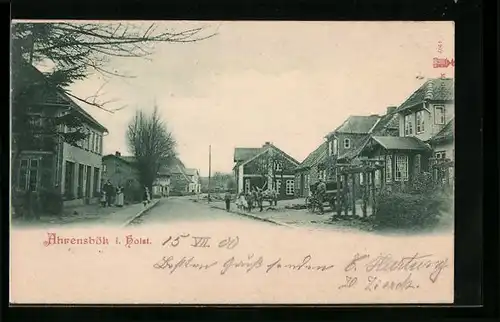 Ahrensbök i. Holst. 15 VII. 00
Besten Gruß senden E. Hartung
W. Zierck.